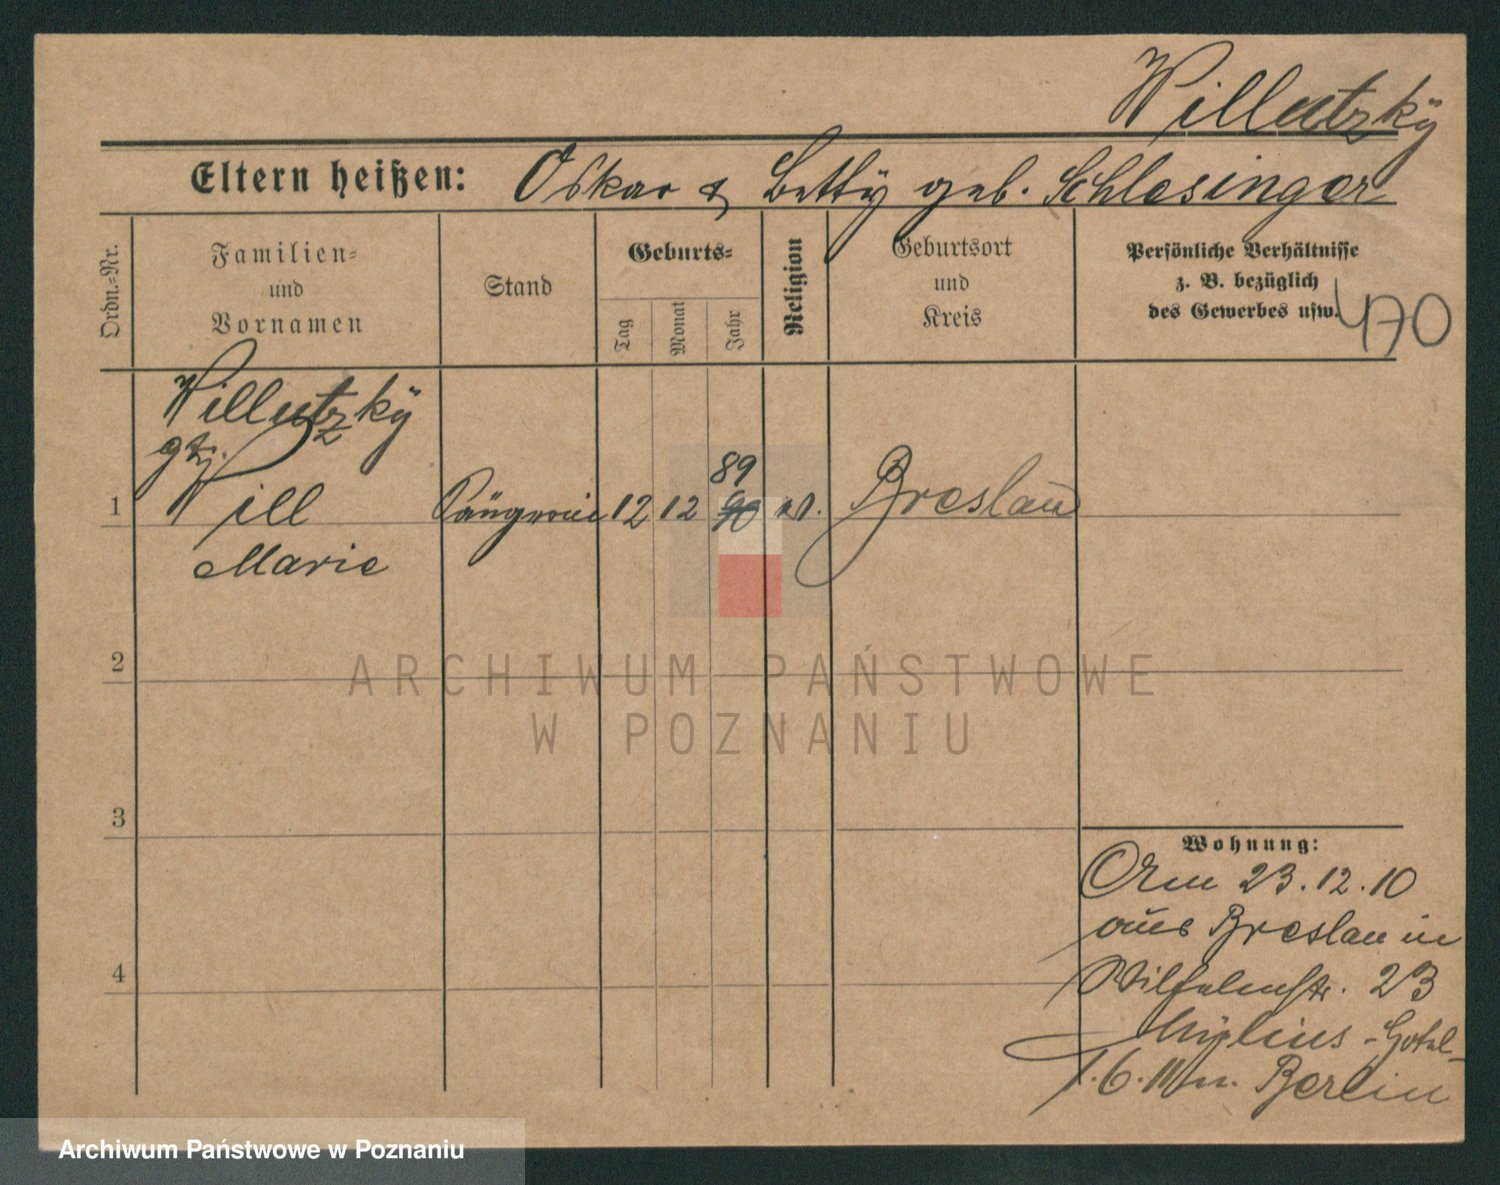 Willutzky
Eltern heißen: Oskar & Betty geb. Schlesinger
Ordn.-Nr.
Familien-
und
Vornamen
Stand
Geburts-
Tag
Monat
Jahr
Religion
Geburtsort
und
Kreis
Persönliche Verhältnisse
z. B. bezüglich
des Gewerbes usw.
470
Willutzky
gen.
1 Will Sängerin 12 12 89 90 Breslau
Marie
2
3
4
ARCHIWUM PAŃSTWOWE
W POZNANIU
Wohnung:
Am 23.12.10
aus Breslau in
Wilhelmstr. 23
Mylius-Hotel
1.6.11 n. Berlin
Archiwum Państwowe w Poznaniu